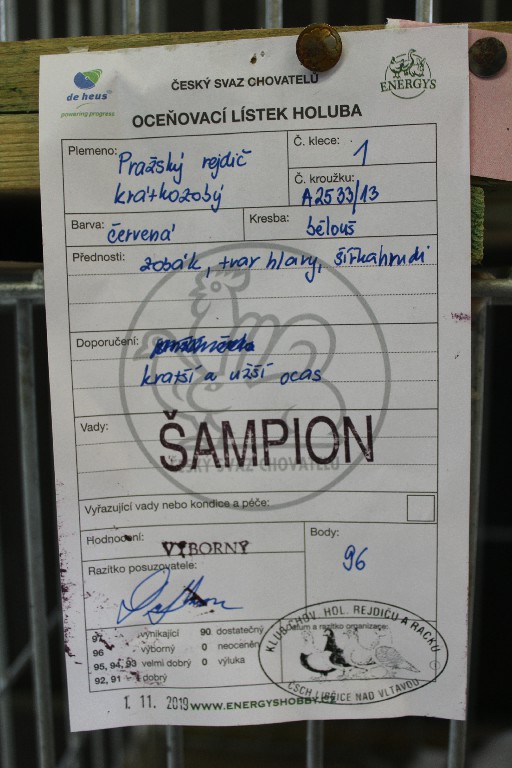 de heus
powering progress
ČESKÝ SVAZ CHOVATELŮ
ENERGYS
OCEŇOVACÍ LÍSTEK HOLUBA
Plemeno: Pražský rejdič
krátkozobý
Č. klece: 1
Č. kroužku:
A2533/13
Barva: červená
Kresba: bělouš
Přednosti: zobák, tvar hlavy, šířka hrudi
Doporučení:
kratší a užší ocas
Vady:
ŠAMPION
ČESKÝ SVAZ CHOVATELŮ
Vyřazující vady nebo kondice a péče:
Hodnocení: VÝBORNÝ
Body: 96
Razítko posuzovatele:
97 vynikající 90 dostatečný
96 výborný 0 neoceněn
95, 94, 93 velmi dobrý 0 výluka
92, 91 dobrý
Datum a razítko organizace:
KLUB CHOV. HOL. REJDIČŮ A RAČKŮ
ČSCH LIBČICE NAD VLTAVOU
1. 11. 2019
WWW.ENERGYSHOBBY